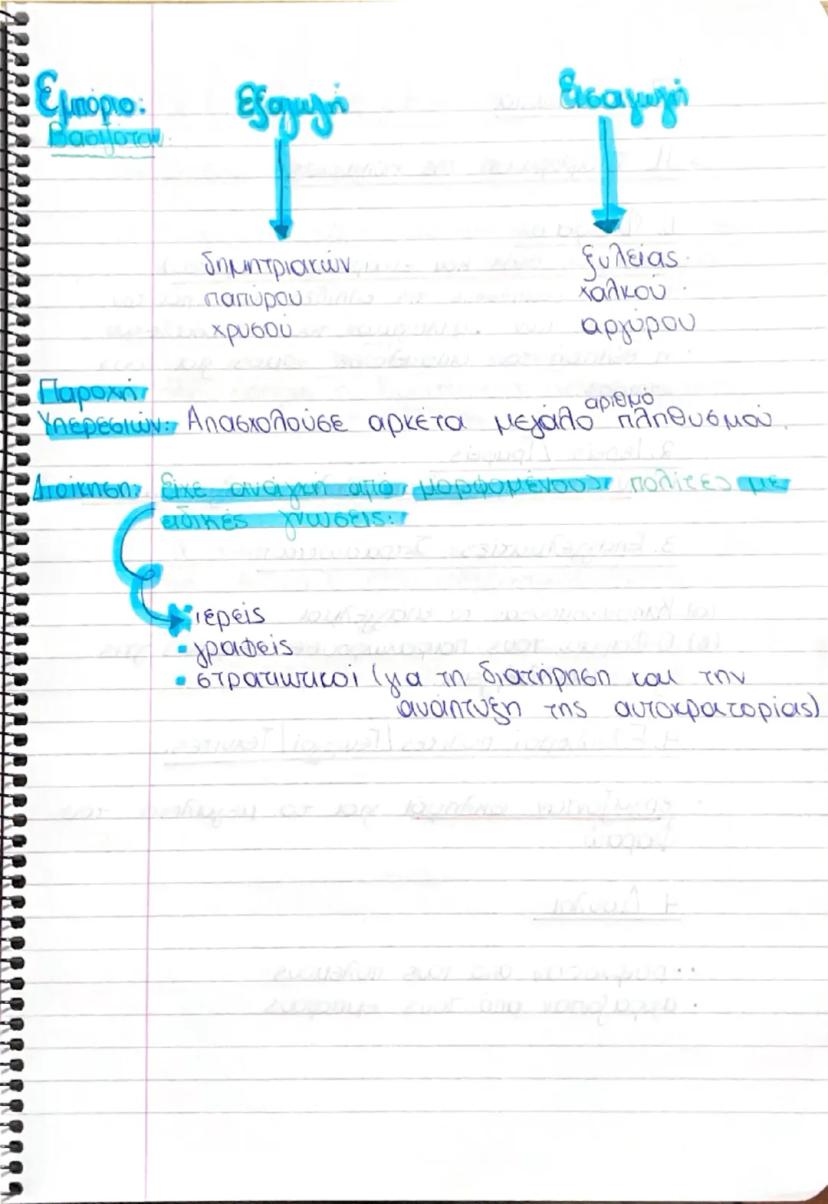 Εμπόριο: Εξαγωγή Εισαγωγή
Βασιζόταν:
δημητριακών ξυλείας
παπύρου χαλκού
χρυσού αργύρου
Παροχή
Υπερεσιών: Απασχολούσε αρκετά μεγάλο αριθμό πληθυσμού.
Διοίκηση: Είχε ανάγκη από μορφομένους πολίτες με
ειδικές γνώσεις:
ιερείς
• γραφείς
• στρατιωτικοί (για τη διατήρηση και την
ανάπτυξη της αυτοκρατορίας)